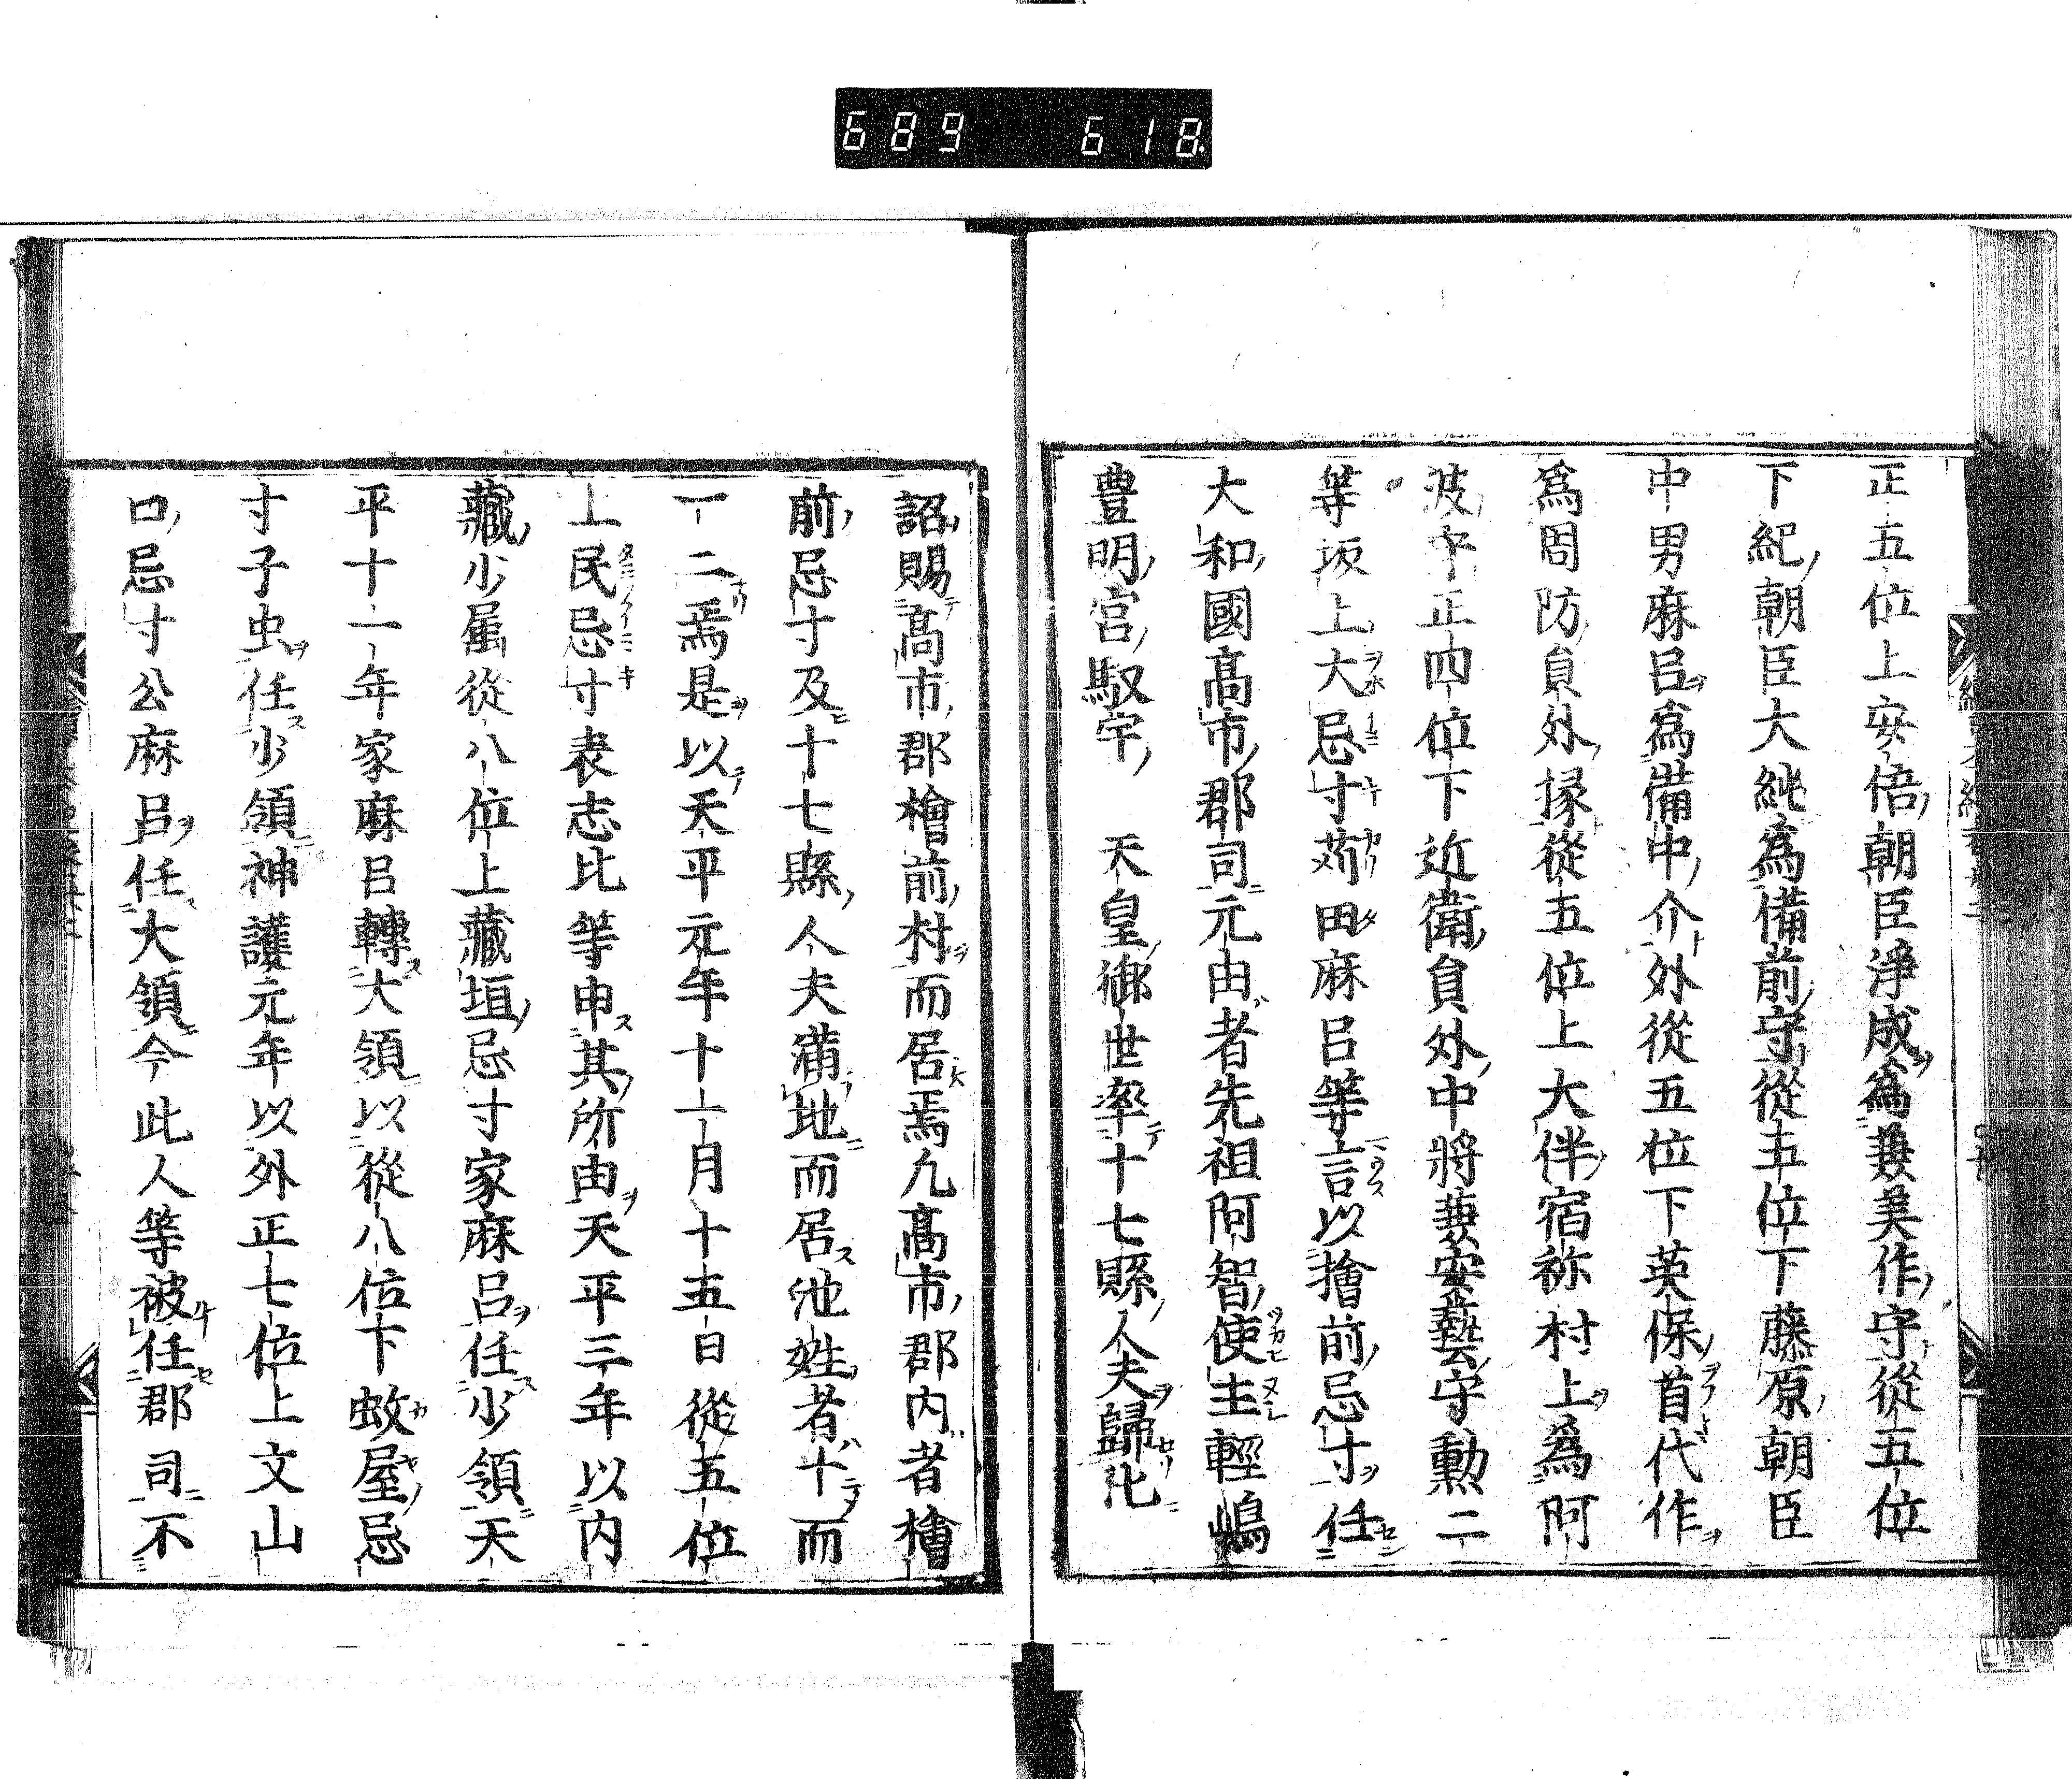 689 618
正五位上安倍朝臣淨成爲兼美作守從五位
下紀朝臣大純爲備前守從五位下藤原朝臣
中男麻呂爲備中介外從五位下英保首代作
爲周防員外掾從五位上大伴宿祢村上爲阿
波守正四位下近衛員外中將兼安藝守勲二
等坂上大忌寸苅田麻呂等言以檜前忌寸任
大和國髙市郡司元由者先祖阿智使主輕嶋
豊明宮馭宇 天皇御世率十七縣人夫歸化
詔賜髙市郡檜前村而居焉凢髙市郡内者檜
前忌寸及十七縣人夫滿地而居他姓者十而
一二焉是以天平元年十一月十五日從五位
上民忌寸袁志比等申其所由天平三年以内
藏少屬從八位上藏垣忌寸家麻呂任少領天
平十一年家麻呂轉大領以從八位下蚊屋忌
寸子虫任少領神護元年以外正七位上文山
口忌寸公麻呂任大領今此人等被任郡司不